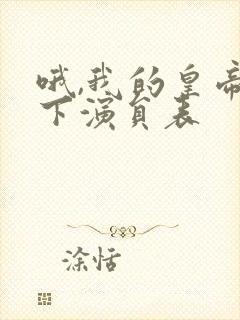 哦,我的皇帝
下演员表
涂恬